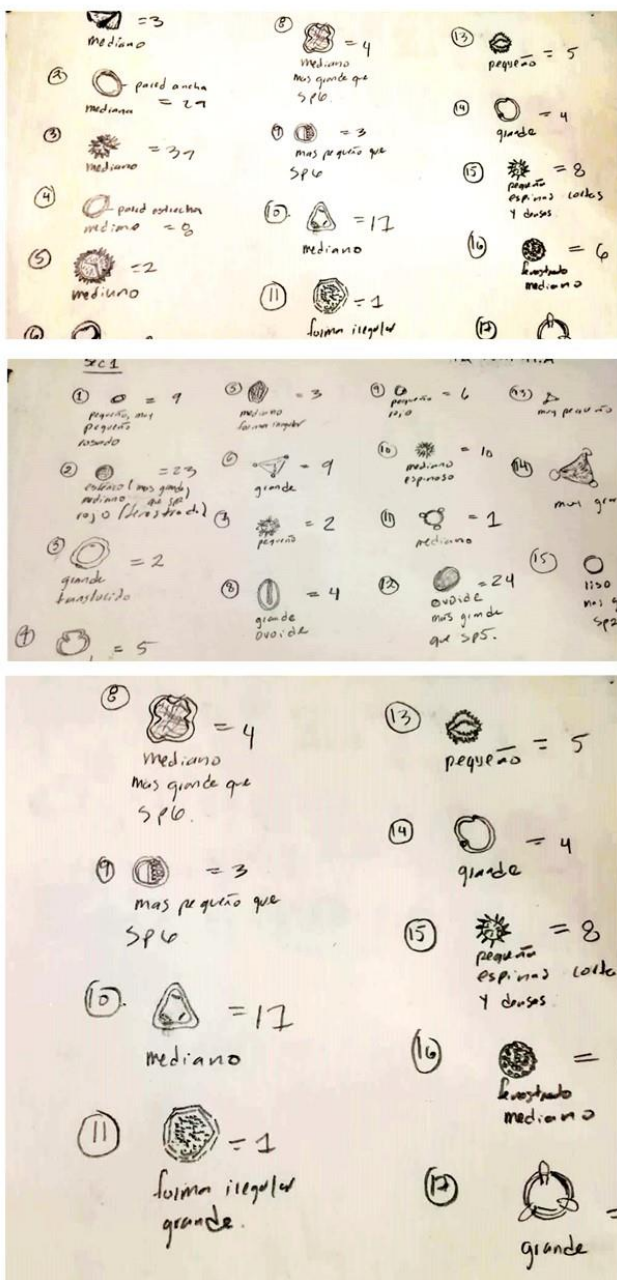 = 3
mediano
② pared ancha
mediana = 29
③ = 39
mediano
④ pared estrecha
mediano = 8
⑤ = 2
mediano
⑥
⑧ = 4
mediano
mas grande que
SP6.
⑨ = 3
mas pequeño que
SP6
⑩. = 17
mediano
⑪ = 1
forma iregular
⑬ = 5
pequeño
⑭ = 4
grande
⑮ = 8
pequeña
espinas cortas
y densas.
⑯ = 6
fenestrado
mediano
⑰
sec 1
① = 9
pequeño, muy
pequeño
rosado
② = 23
mediano que
rojo (fenestrado)
③ = 2
grande
translucido
④ = 5
⑤ = 3
mediano
forma irregular
⑥ = 9
grande
⑦ = 2
pequeño
⑧ = 4
grande
ovoide
⑨ = 6
pequeño
rojo
⑩ = 10
mediano
espinoso
⑪ = 1
mediano
⑫ = 24
ovoide
mas grande
que SP5.
⑬
muy pequeño
⑭
muy gra
⑮
liso
mas g
SP2
⑧ = 4
mediano
mas grande que
SP6.
⑨ = 3
mas pequeño que
SP6
⑩. = 17
mediano
⑪ = 1
forma iregular
grande.
⑬ = 5
pequeño
⑭ = 4
grande
⑮ = 8
pequeña
espinas cortas
y densas
⑯ =
fenestrado
mediano
⑰ =
grande